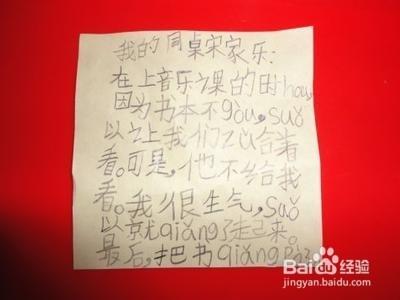 我的同桌宋家乐:
在上音乐课的时hou,
因为书本不gòu,suǒ
以之上我们zu合着
看。可是,他不给我
看。我很生气,suǒ
以就qiǎng了起来。
最后,把书qiǎng
Baidu 经验
jingyan.baidu.com